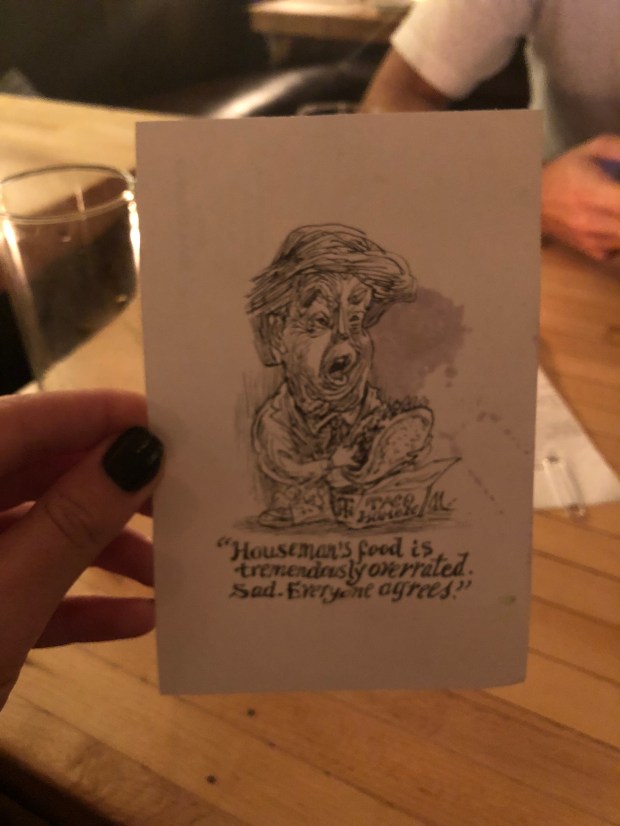 TACO
"Houseman's food is
tremendously overrated.
Sad. Everyone agrees."